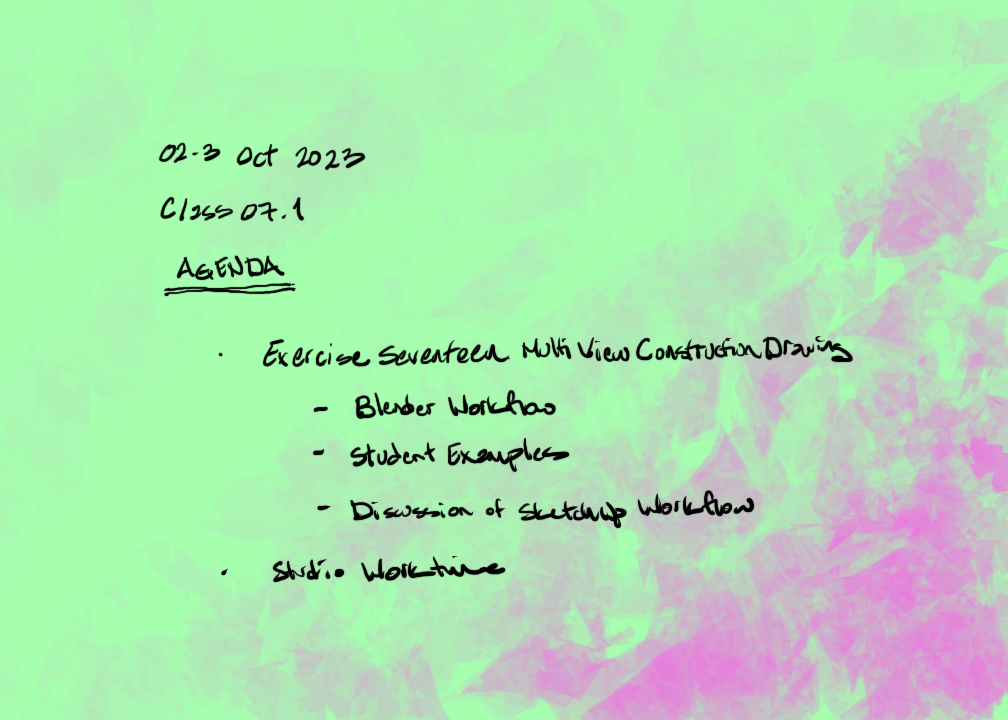 02-3 Oct 2023
Class 07.1
AGENDA
· Exercise Seventeen Multi View Construction Drawing
- Blender Workflow
- Student Examples
- Discussion of Sketchup Workflow
· Studio Worktime